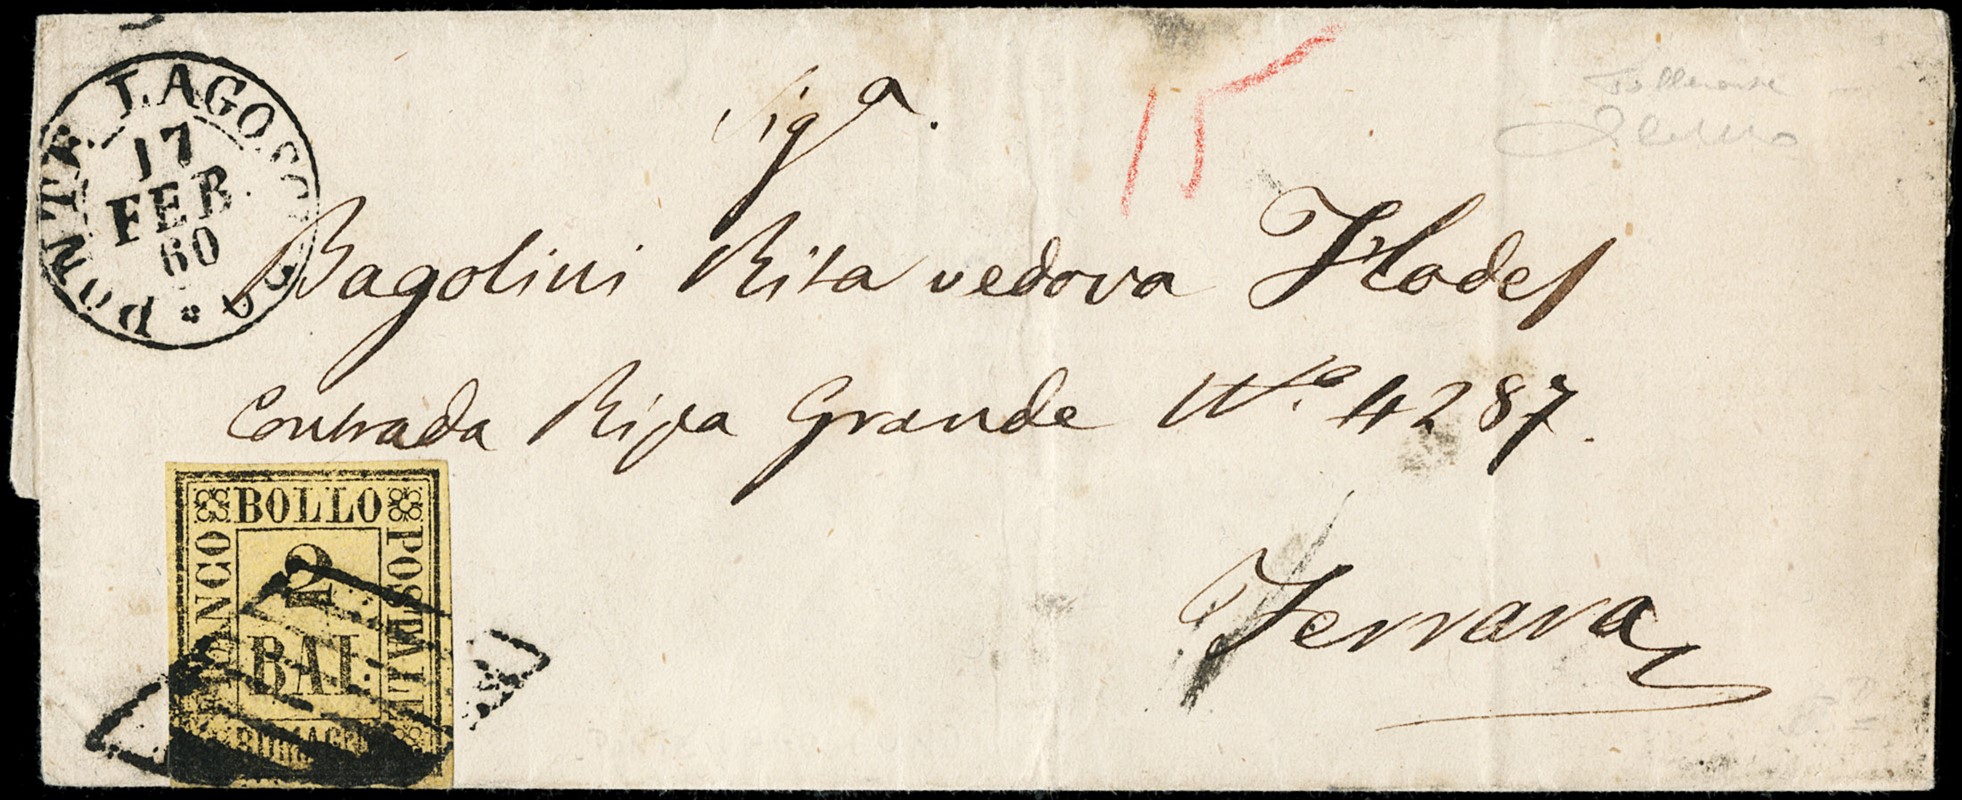 PONTE LAGOSCURO
17
FEB
60
Sig.a
15
Bagolini Rita vedova Hodel
Contrada Ripa Grande No. 4287.
Ferrara
FRANCO BOLLO POSTALE
2
BAI
ROMAGNE